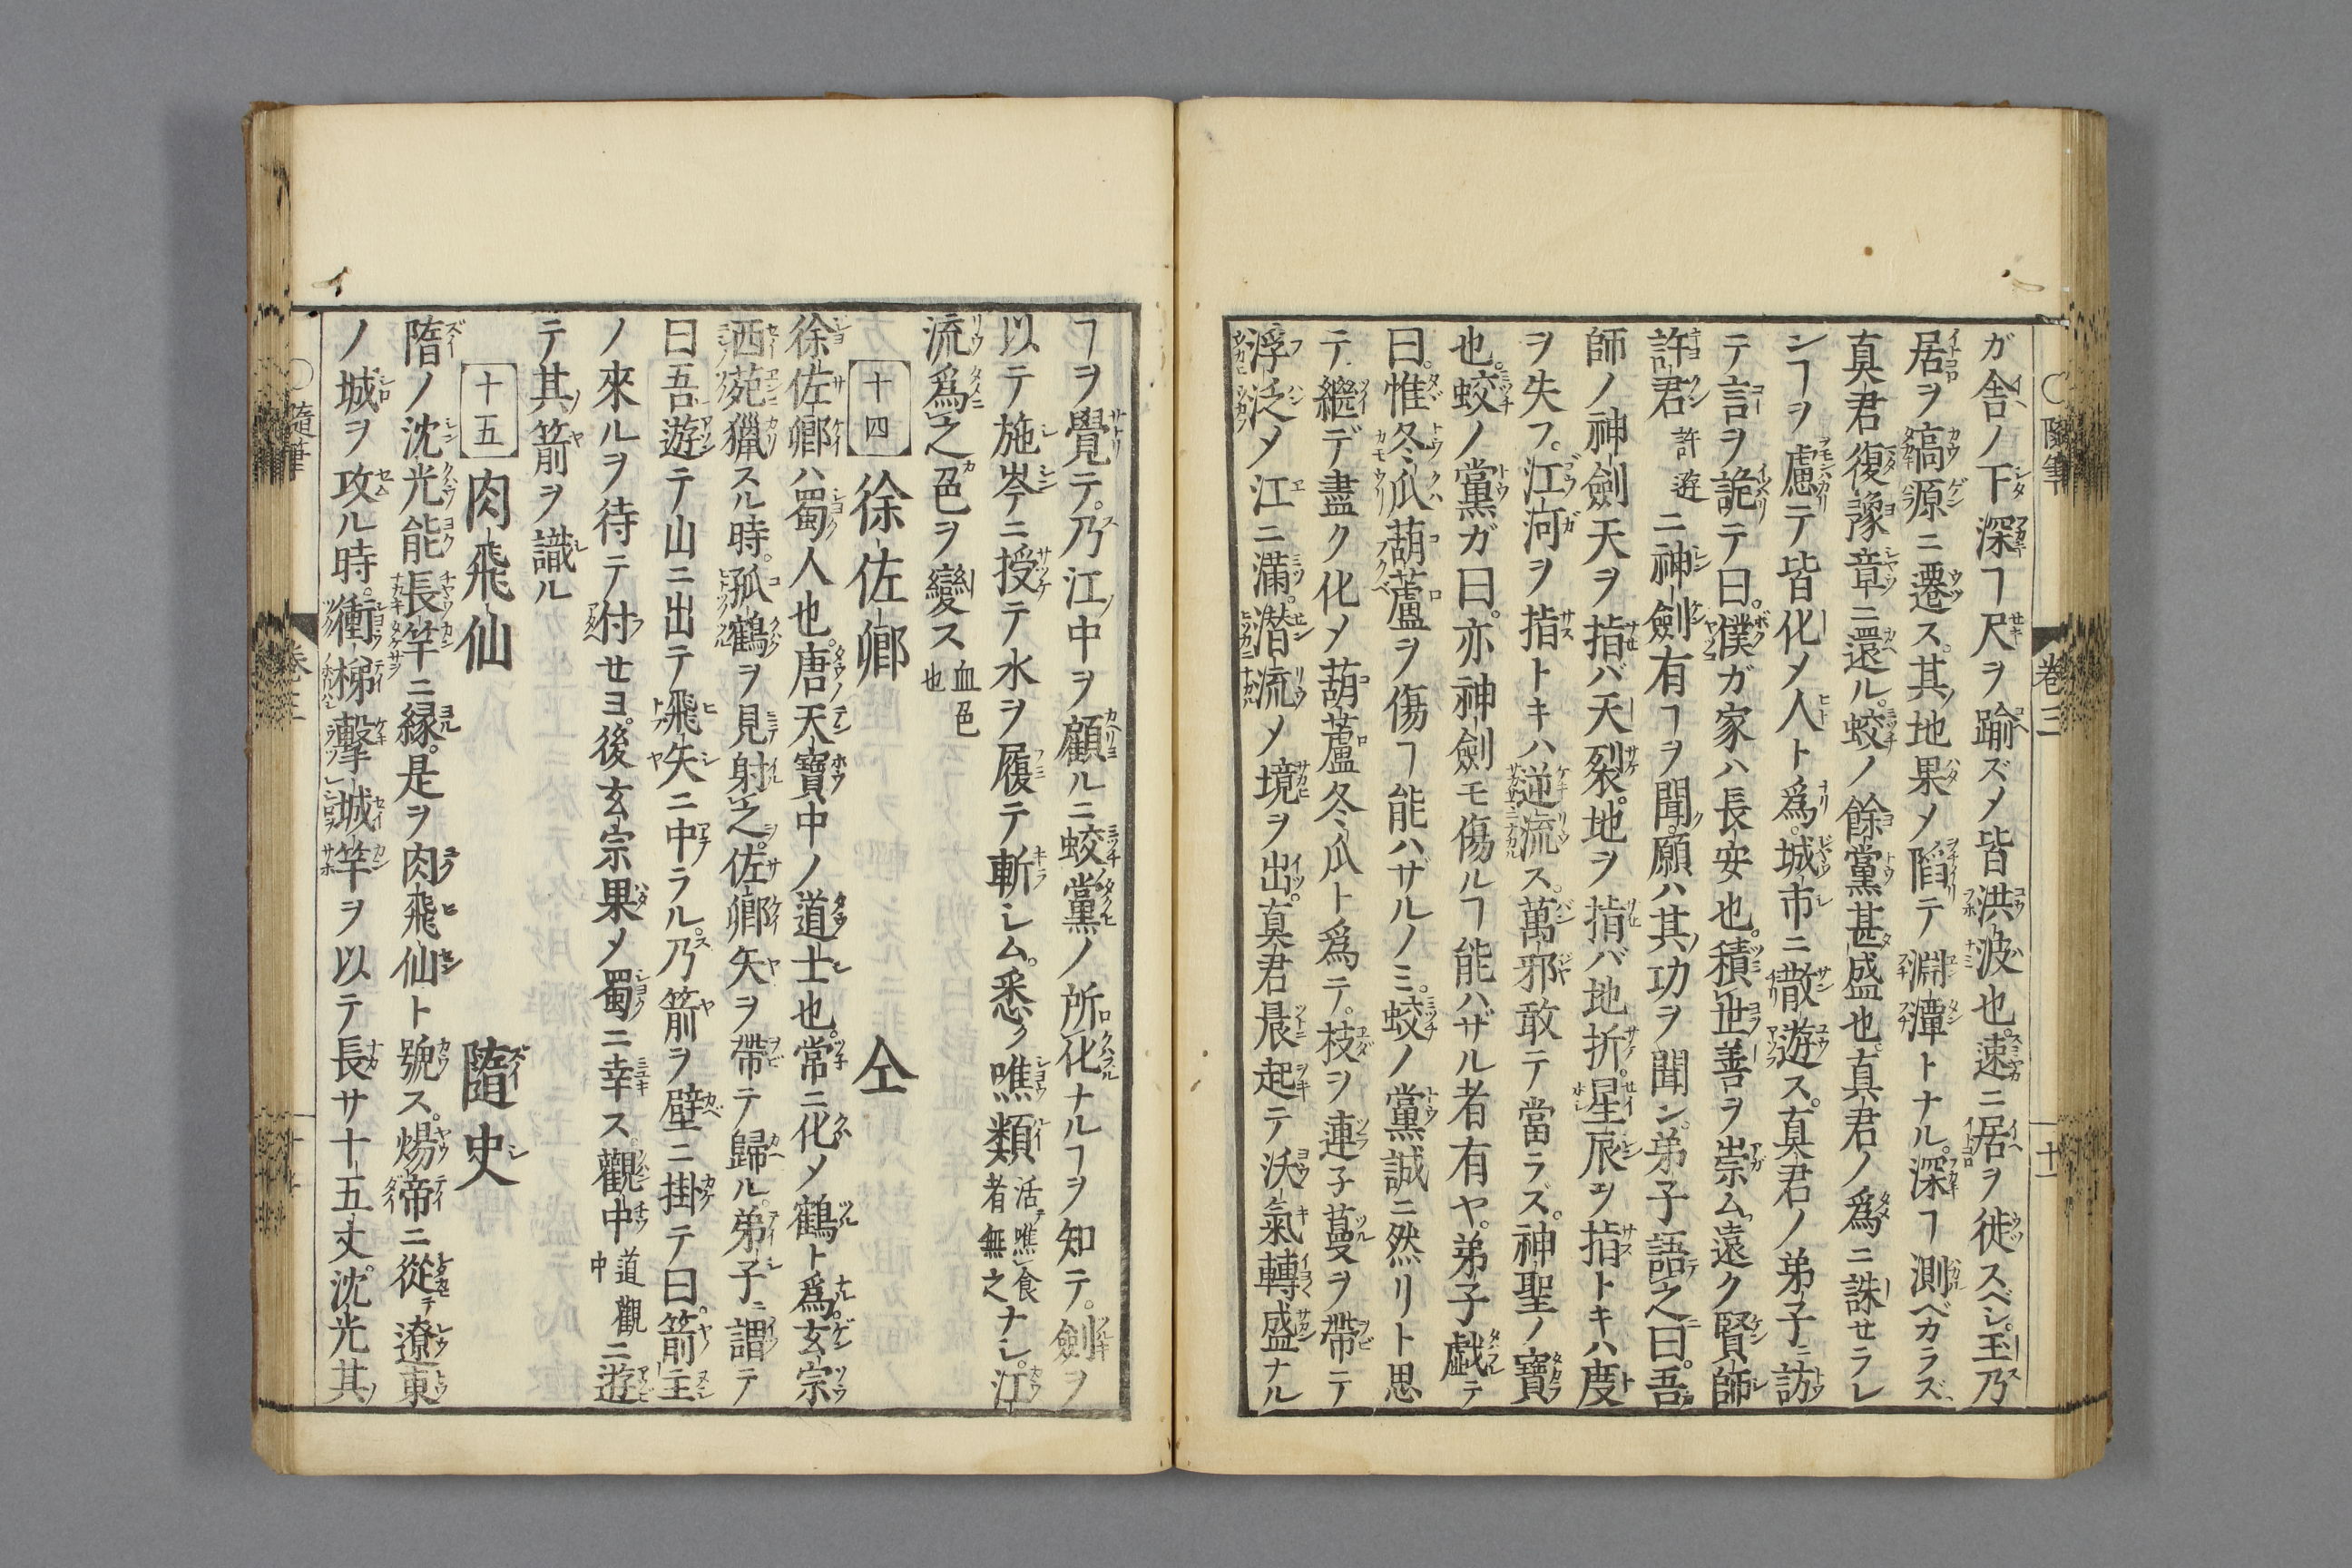 ガ舎ノ下深ヿ尺ヲ踰ズメ皆洪波也。速ニ居ヲ徙スベシ。玉乃
居ヲ高原ニ遷ス。其地果メ陷テ淵潭トナル。深ヿ測ベカラズ、
真君復豫章ニ還ル。蛟ノ餘黨甚盛也。真君ノ爲ニ誅セラレ
ンヿヲ慮テ皆化メ人ト爲。城市ニ散遊ス。真君ノ弟子ニ訪
テ言ヲ詭テ曰。僕ガ家ハ長安也。積世善ヲ崇ム。遠ク賢師
許君許遊ニ神劍有ヿヲ聞。願ハ其功ヲ聞ン。弟子語之曰。吾
師ノ神劍天ヲ指バ天裂。地ヲ指バ地折。星辰ヲ指トキハ度
ヲ失フ。江河ヲ指トキハ逆流ス。萬邪敢テ當ラズ。神聖ノ寶
也。蛟ノ黨ガ曰。亦神劍モ傷ルヿ能ハザル者有ヤ。弟子戯テ
曰。惟冬瓜葫蘆ヲ傷ヿ能ハザルノミ。蛟ノ黨誠ニ然リト思
テ。繼デ盡ク化メ葫蘆冬瓜ト爲テ。枝ヲ連子蔓ヲ帶テ
浮泛メ江ニ滿。潜流メ境ヲ出。真君晨起テ沃氣轉盛ナル
○隨筆　卷三　十一
ヿヲ覺テ。乃江中ヲ顧ルニ蛟黨ノ所化ナルヿヲ知テ。劍ヲ
以テ施岺ニ授テ水ヲ履テ斬シム。悉ク噍類活テ噍食者無之ナシ。江
流爲之色ヲ變ス血色也
十四　徐佐卿　仝
徐佐卿ハ蜀人也。唐天寶中ノ道士也。常ニ化メ鶴ト爲。玄宗
西苑獵スル時。孤鶴ヲ見射之。佐卿矢ヲ帶テ歸ル。弟子ニ謂テ
曰吾遊テ山ニ出テ飛矢ニ中ラル。乃箭ヲ壁ニ掛テ曰。箭主
ノ來ルヲ待テ付セヨ。後玄宗果メ蜀ニ幸ス。觀中道觀中ニ遊
テ其箭ヲ識ル
十五　肉飛仙　隨史
隋ノ沈光能長竿ニ縁。是ヲ肉飛仙ト號ス。煬帝ニ從テ遼東
ノ城ヲ攻ル時。衝梯擊城竿ヲ以テ長サ十五丈。沈光其
○隨筆　卷三